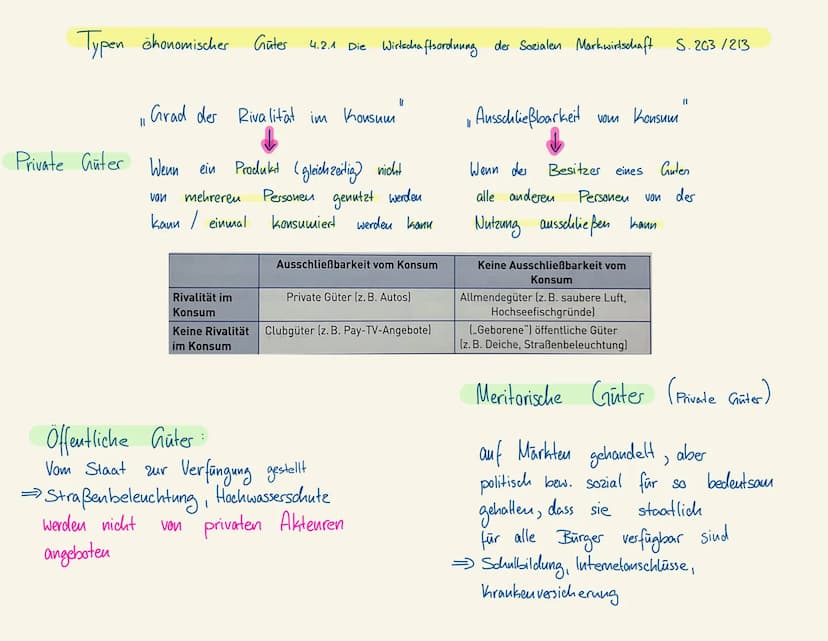 Typen ökonomischer Güter 4.2.1 Die Wirtschaftsordnung der Sozialen Markwirtschaft S. 203/213
„Grad der Rivalität im Konsum"
„Ausschließbarkeit vom Konsum"
Private Güter
Wenn ein Produkt (gleichzeitig) nicht
von mehreren Personen genutzt werden
kann / einmal konsumiert werden kann
Wenn der Besitzer eines Gutes
alle anderen Personen von der
Nutzung ausschließen kann
Ausschließbarkeit vom Konsum
Keine Ausschließbarkeit vom
Konsum
Rivalität im
Konsum
Private Güter (z. B. Autos)
Allmendegüter (z. B. saubere Luft,
Hochseefischgründe)
Keine Rivalität
im Konsum
Clubgüter (z. B. Pay-TV-Angebote)
(„Geborene") öffentliche Güter
(z. B. Deiche, Straßenbeleuchtung)
Öffentliche Güter:
Vom Staat zur Verfüngung gestellt
⇒ Straßenbeleuchtung, Hochwasserschutz
werden nicht von privaten Akteuren
angeboten
Meritorische Güter (Private Güter)
auf Märkten gehandelt, aber
politisch bzw. sozial für so bedeutsam
gehalten, dass sie staatlich
für alle Bürger verfügbar sind
⇒ Schulbildung, Internetanschlüsse,
Krankenversicherung